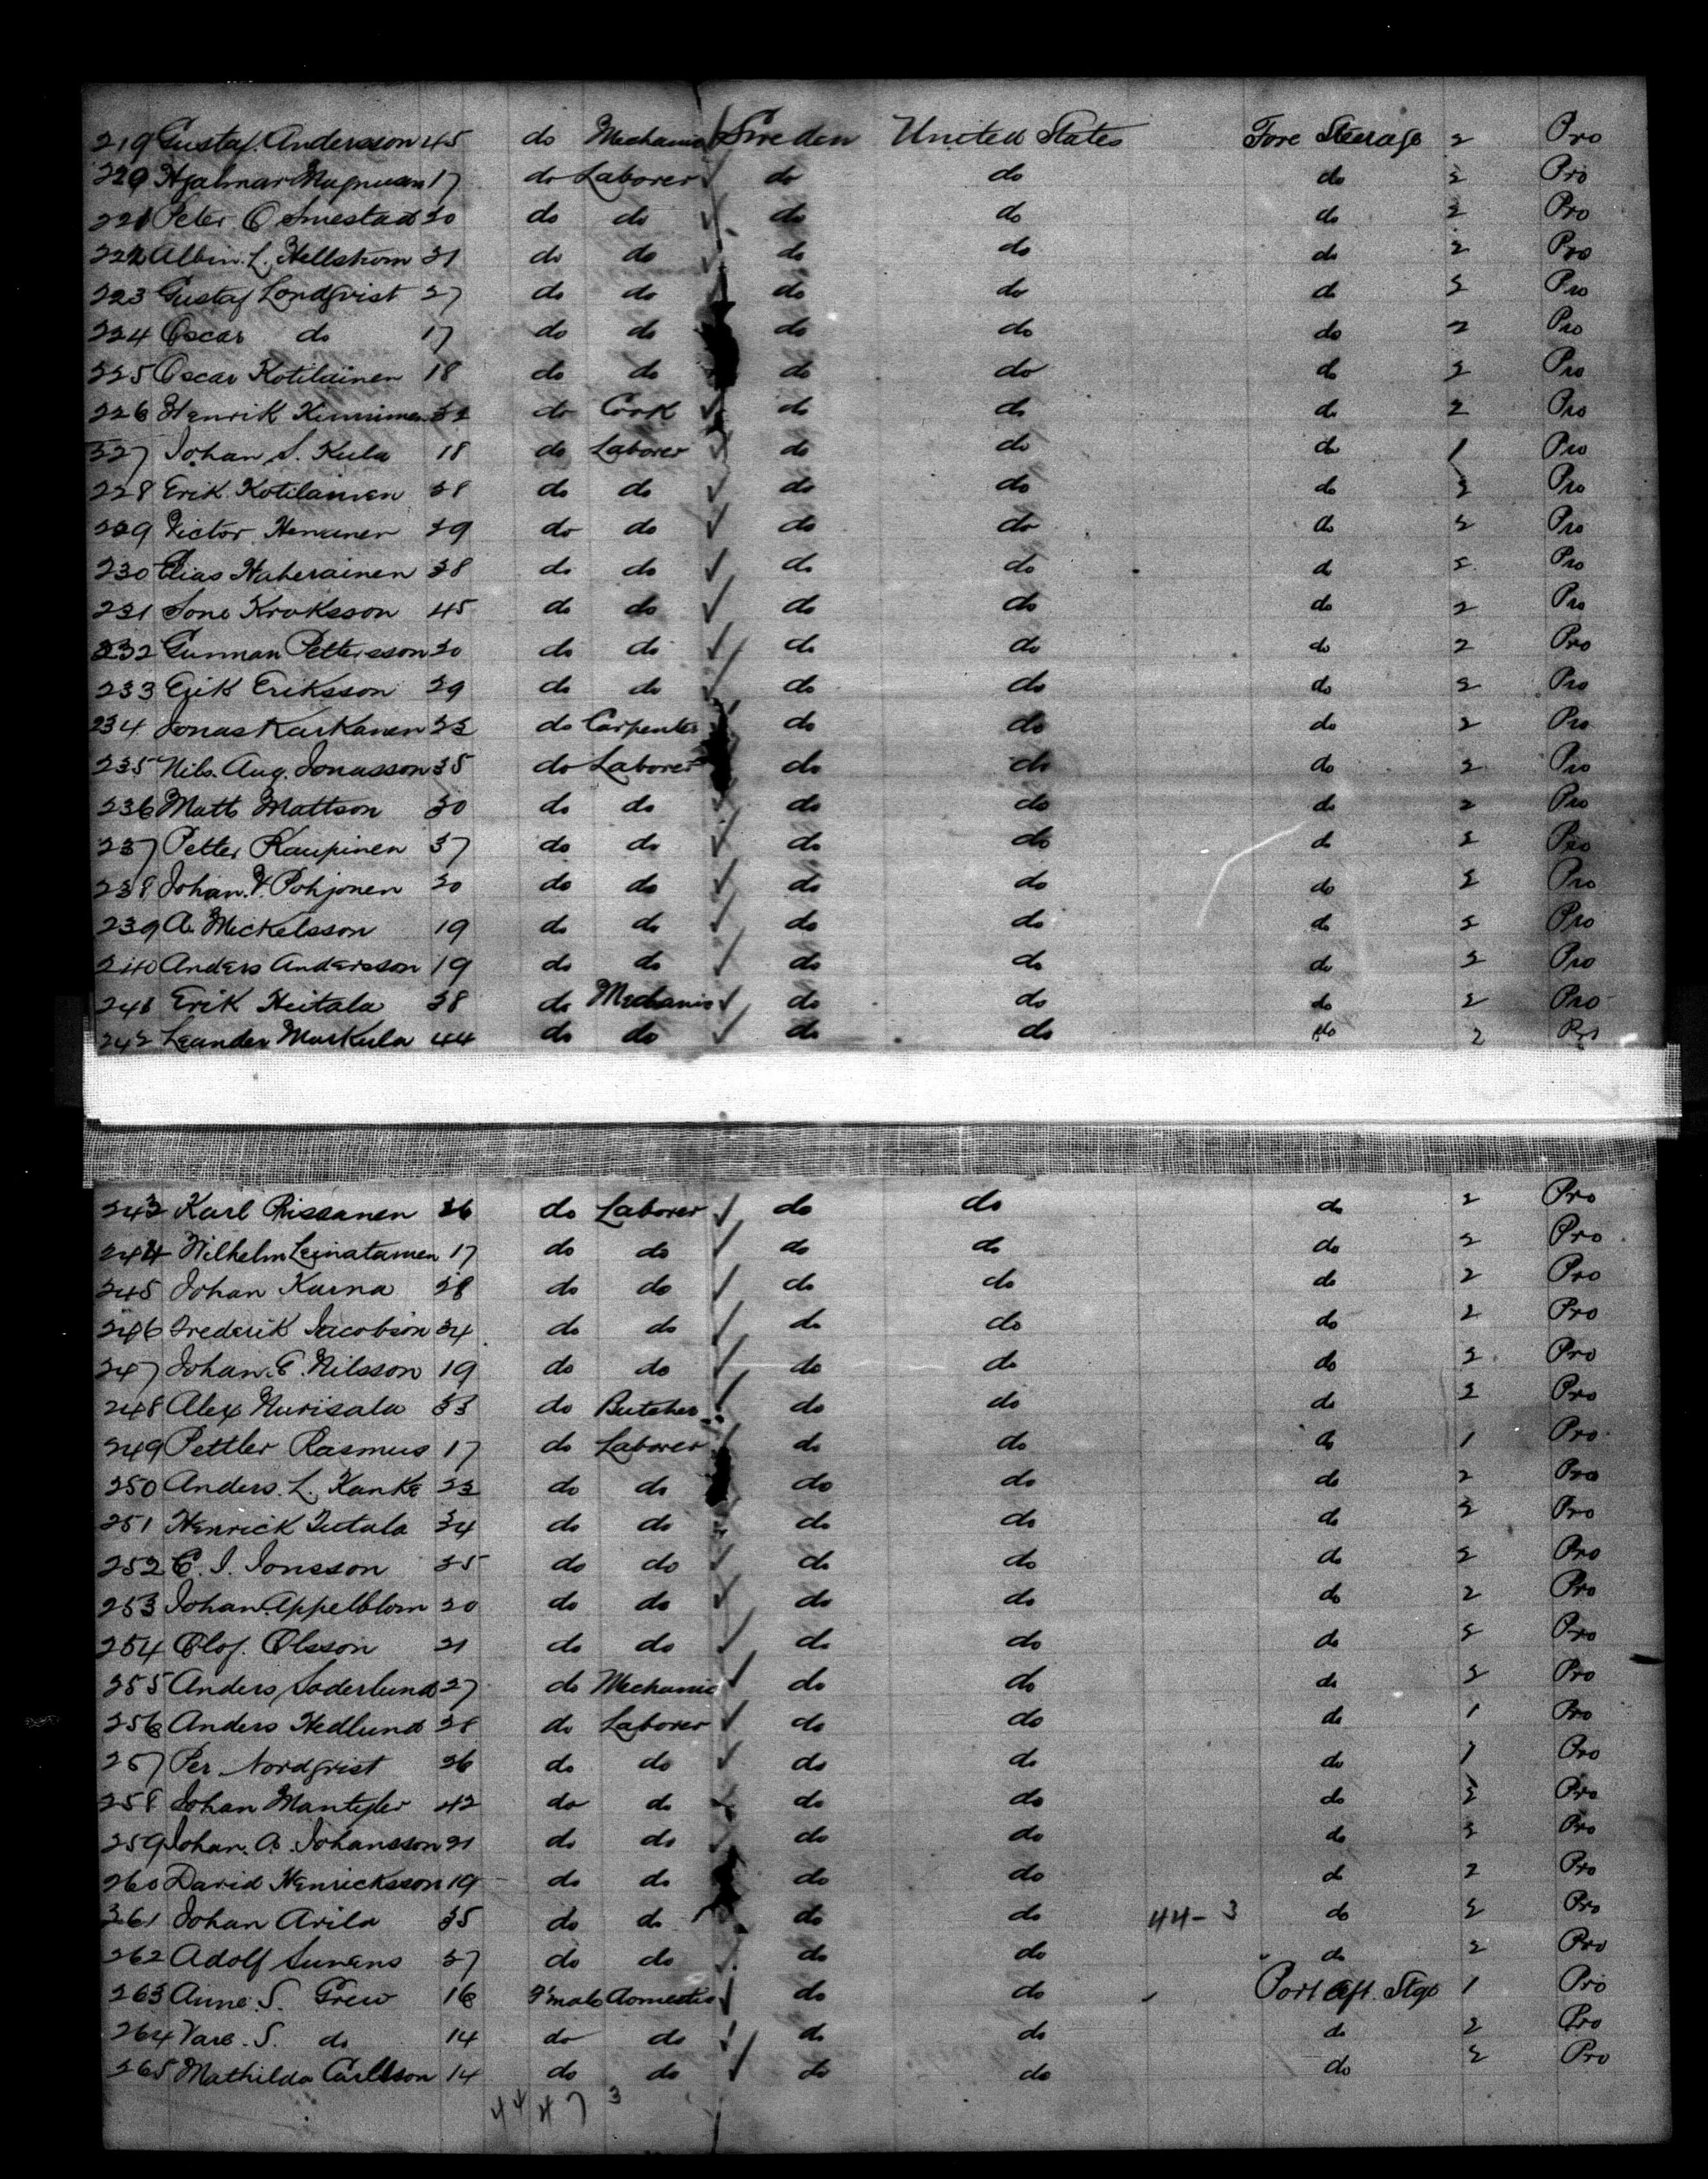 219 Gustaf Andersson 45 do Mechanic Sweden United States Fore Steerage 2 Pro
220 Hjalmar Magnuson 17 do Laborer do do do 2 Pro
221 Peter O Smestad 20 do do do do do 2 Pro
222 Albin. L. Hellstrom 21 do do do do do 2 Pro
223 Gustaf Londqvist 27 do do do do do 2 Pro
224 Oscar do 17 do do do do do 2 Pro
225 Oscar Kotilainen 18 do do do do do 2 Pro
226 Henrik 32 do Cook do do do 2 Pro
227 Johan S. Kula 18 do Laborer do do do 1 Pro
228 Erik Kotilainen 28 do do do do do 2 Pro
229 Victor 29 do do do do do 2 Pro
230 Elias Haherainen 38 do do do do do 2 Pro
231 Kroksson 45 do do do do do 2 Pro
232 Gunman Pettersson 20 do do do do do 2 Pro
233 Erik Eriksson 29 do do do do do 2 Pro
234 Jonas Karkanen 23 do Carpenter do do do 2 Pro
235 Nils. Aug. Jonasson 35 do Laborer do do do 2 Pro
236 Matts Mattson 30 do do do do do 2 Pro
237 Petter Kaupinen 37 do do do do do 2 Pro
238 Johan. Pohjonen 20 do do do do do 2 Pro
239 A. Mickelsson 19 do do do do do 2 Pro
240 Anders Andersson 19 do do do do do 2 Pro
241 Erik Heitala 38 do Mechanic do do do 2 Pro
242 Leander Markula 44 do do do do do 2 Pro
243 Karl Rissanen 26 do Laborer do do do 2 Pro
244 Wilhelm 17 do do do do do 2 Pro
245 Johan Karna 28 do do do do do 2 Pro
246 Frederik Jacobson 24 do do do do do 2 Pro
247 Johan. E. Nilsson 19 do do do do do 2 Pro
248 Alex Nurisala 33 do Butcher do do do 2 Pro
249 Pettler Rasmus 17 do Laborer do do do 1 Pro
250 Anders. L. Kanke 23 do do do do do 2 Pro
251 Henrick 34 do do do do do 2 Pro
252 C. J. Jonsson 35 do do do do do 2 Pro
253 Johan Appelblom 20 do do do do do 2 Pro
254 Olof. Olsson 21 do do do do do 2 Pro
255 Anders Soderlund 27 do Mechanic do do do 2 Pro
256 Anders Hedlund 28 do Laborer do do do 1 Pro
257 Per Nordqvist 26 do do do do do 1 Pro
258 Johan 42 do do do do do 2 Pro
259 Johan. A. Johansson 21 do do do do do 2 Pro
260 David Henricksson 19 do do do do do 2 Pro
261 Johan Arila 35 do do do do 44-3 do 2 Pro
262 Adolf 27 do do do do do 2 Pro
263 Anne. S. Grew 16 F'male domestic do do Port Aft. Stge 1 Pro
264 S. do 14 do do do do do 2 Pro
265 Mathilda Carlsson 14 do do do do do 2 Pro
44 47 3